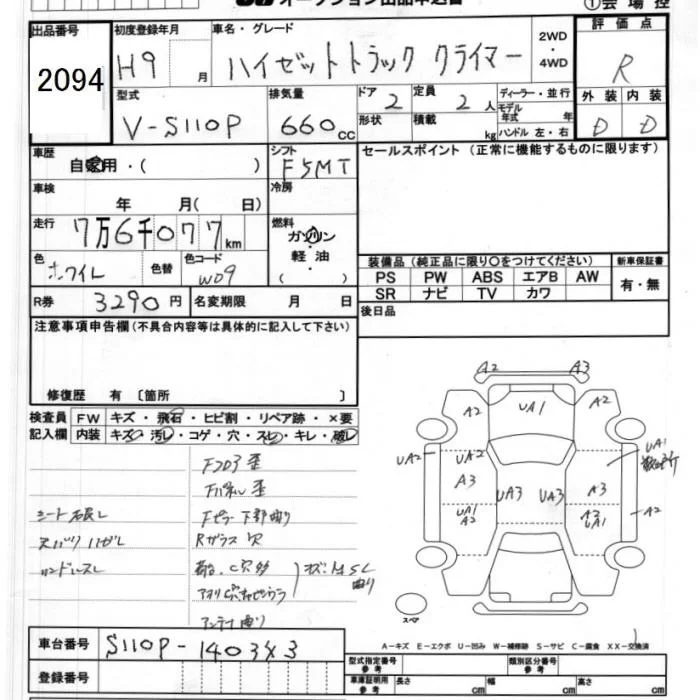 オークション出品申込書 ①会場控
出品番号 2094
初度登録年月 H9 月
車名・グレード ハイゼットトラック クライマー 2WD・4WD
評価点 R
型式 V-S110P
排気量 660 CC
ドア 2 定員 2 人
形状 積載 kg
ディーラー・並行
モデル年式 年
ハンドル 左・右
外装 D 内装 D
車歴 自家用・( )
シフト F5MT
セールスポイント(正常に機能するものに限ります)
車検 年 月( 日)
冷房
走行 7万6千077km
燃料 ガソリン・軽油・( )
色 ホワイト 色替 色コード W09
装備品(純正品に限り○をつけてください) 新車保証書
PS PW ABS エアB AW 有・無
SR ナビ TV カワ
R券 3290円 名変期限 月 日
後日品
注意事項申告欄(不具合内容等は具体的に記入して下さい)
修復歴 有 〔箇所 〕
検査員記入欄 FW キズ・飛石・ヒビ割・リペア跡・×要
内装 キズ・汚レ・コゲ・穴・スレ・キレ・破レ
Fフロア歪
Fパネル歪
シート破レ Fピラー下部曲り
スバリハガレ Rガラス穴
ハンドルスレ
アンテナ曲り
A2 A3
A2 UA1 A2
UA2 UA2 UA1
A3 UA3 UA3 A3
UA1 A2 A3 UA1 A2
スペア
A-キズ E-エクボ U-凹み W-補修跡 S-サビ C-腐食 XX-交換済
車台番号 S110P-1403X3
登録番号
型式指定番号 参考 類別区分番号 参考
車庫証明用 参考 長さ cm 幅 cm 高さ cm